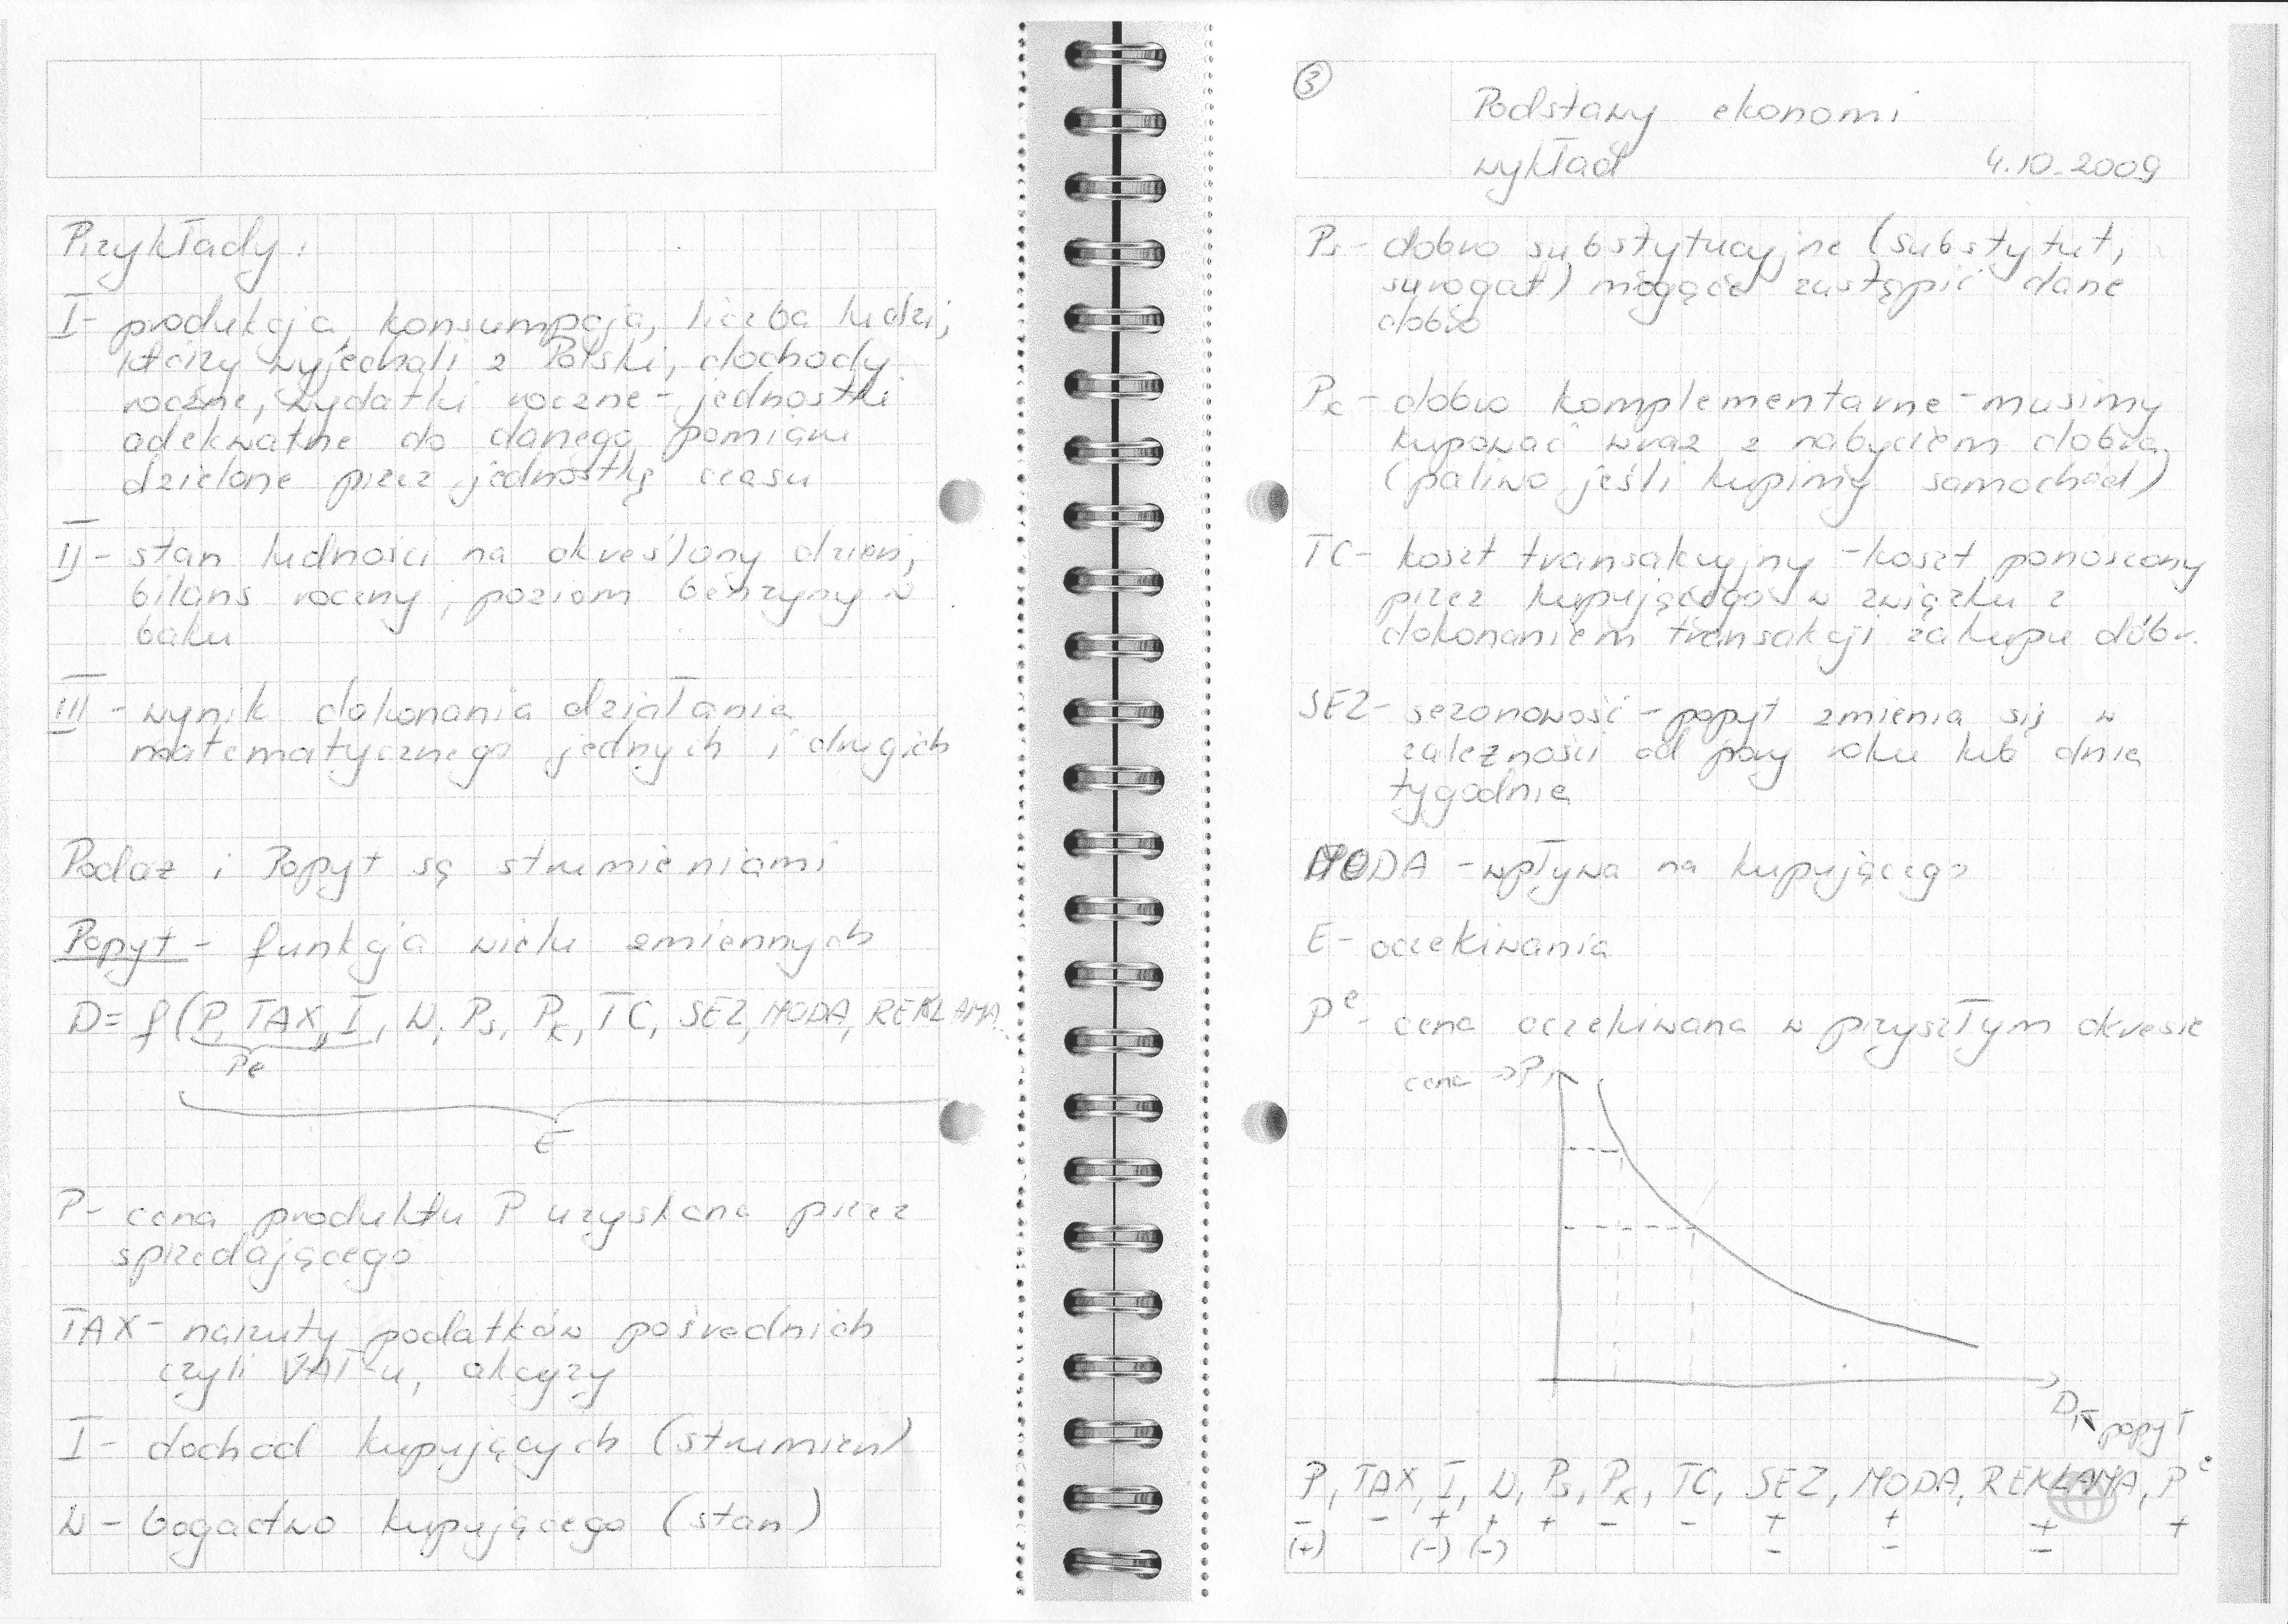 Przykłady:
I- produkcja, konsumpcja, liczba ludzi,
którzy wyjechali z Polski, dochody
roczne, wydatki roczne - jednostki
adekwatne do danego pomiaru
dzielone przez jednostkę czasu
II- stan ludności na określony dzień,
bilans roczny, poziom benzyny w
baku
III - wynik dokonania działania
matematycznego jednych i drugich
Podaż i Popyt są strumieniami
Popyt - funkcja wielu zmiennych
D= f(P, TAX, I, W, Ps, Pk, TC, SEZ, MODA, REKLAMA...
Pe
E
P- cena produktu P uzyskana przez
sprzedającego
TAX- narzuty podatków pośrednich
czyli VAT-u, akcyzy
I- dochód kupujących (strumień)
W - bogactwo kupującego (stan)
3
Podstawy ekonomi
wykład 4.10.2009
Ps- dobro substytucyjne (substytut,
surogat) mogące zastąpić dane
dobro
Pk- dobro komplementarne - musimy
kupować wraz z nabyciem dobra
(paliwo jeśli kupimy samochód)
TC- koszt transakcyjny - koszt ponoszony
przez kupującego w związku z
dokonaniem transakcji zakupu dóbr.
SEZ- sezonowość - popyt zmienia się w
zależności od pory roku lub dnia
tygodnia
MODA - wpływa na kupującego
E- oczekiwania
P^e- cena oczekiwana w przyszłym okresie
cena → P
D ← popyt
P, TAX, I, W, Ps, Pk, TC, SEZ, MODA, REKLAMA, P^e
- - + + + - - + + + +
(+) (-) (-) - - -